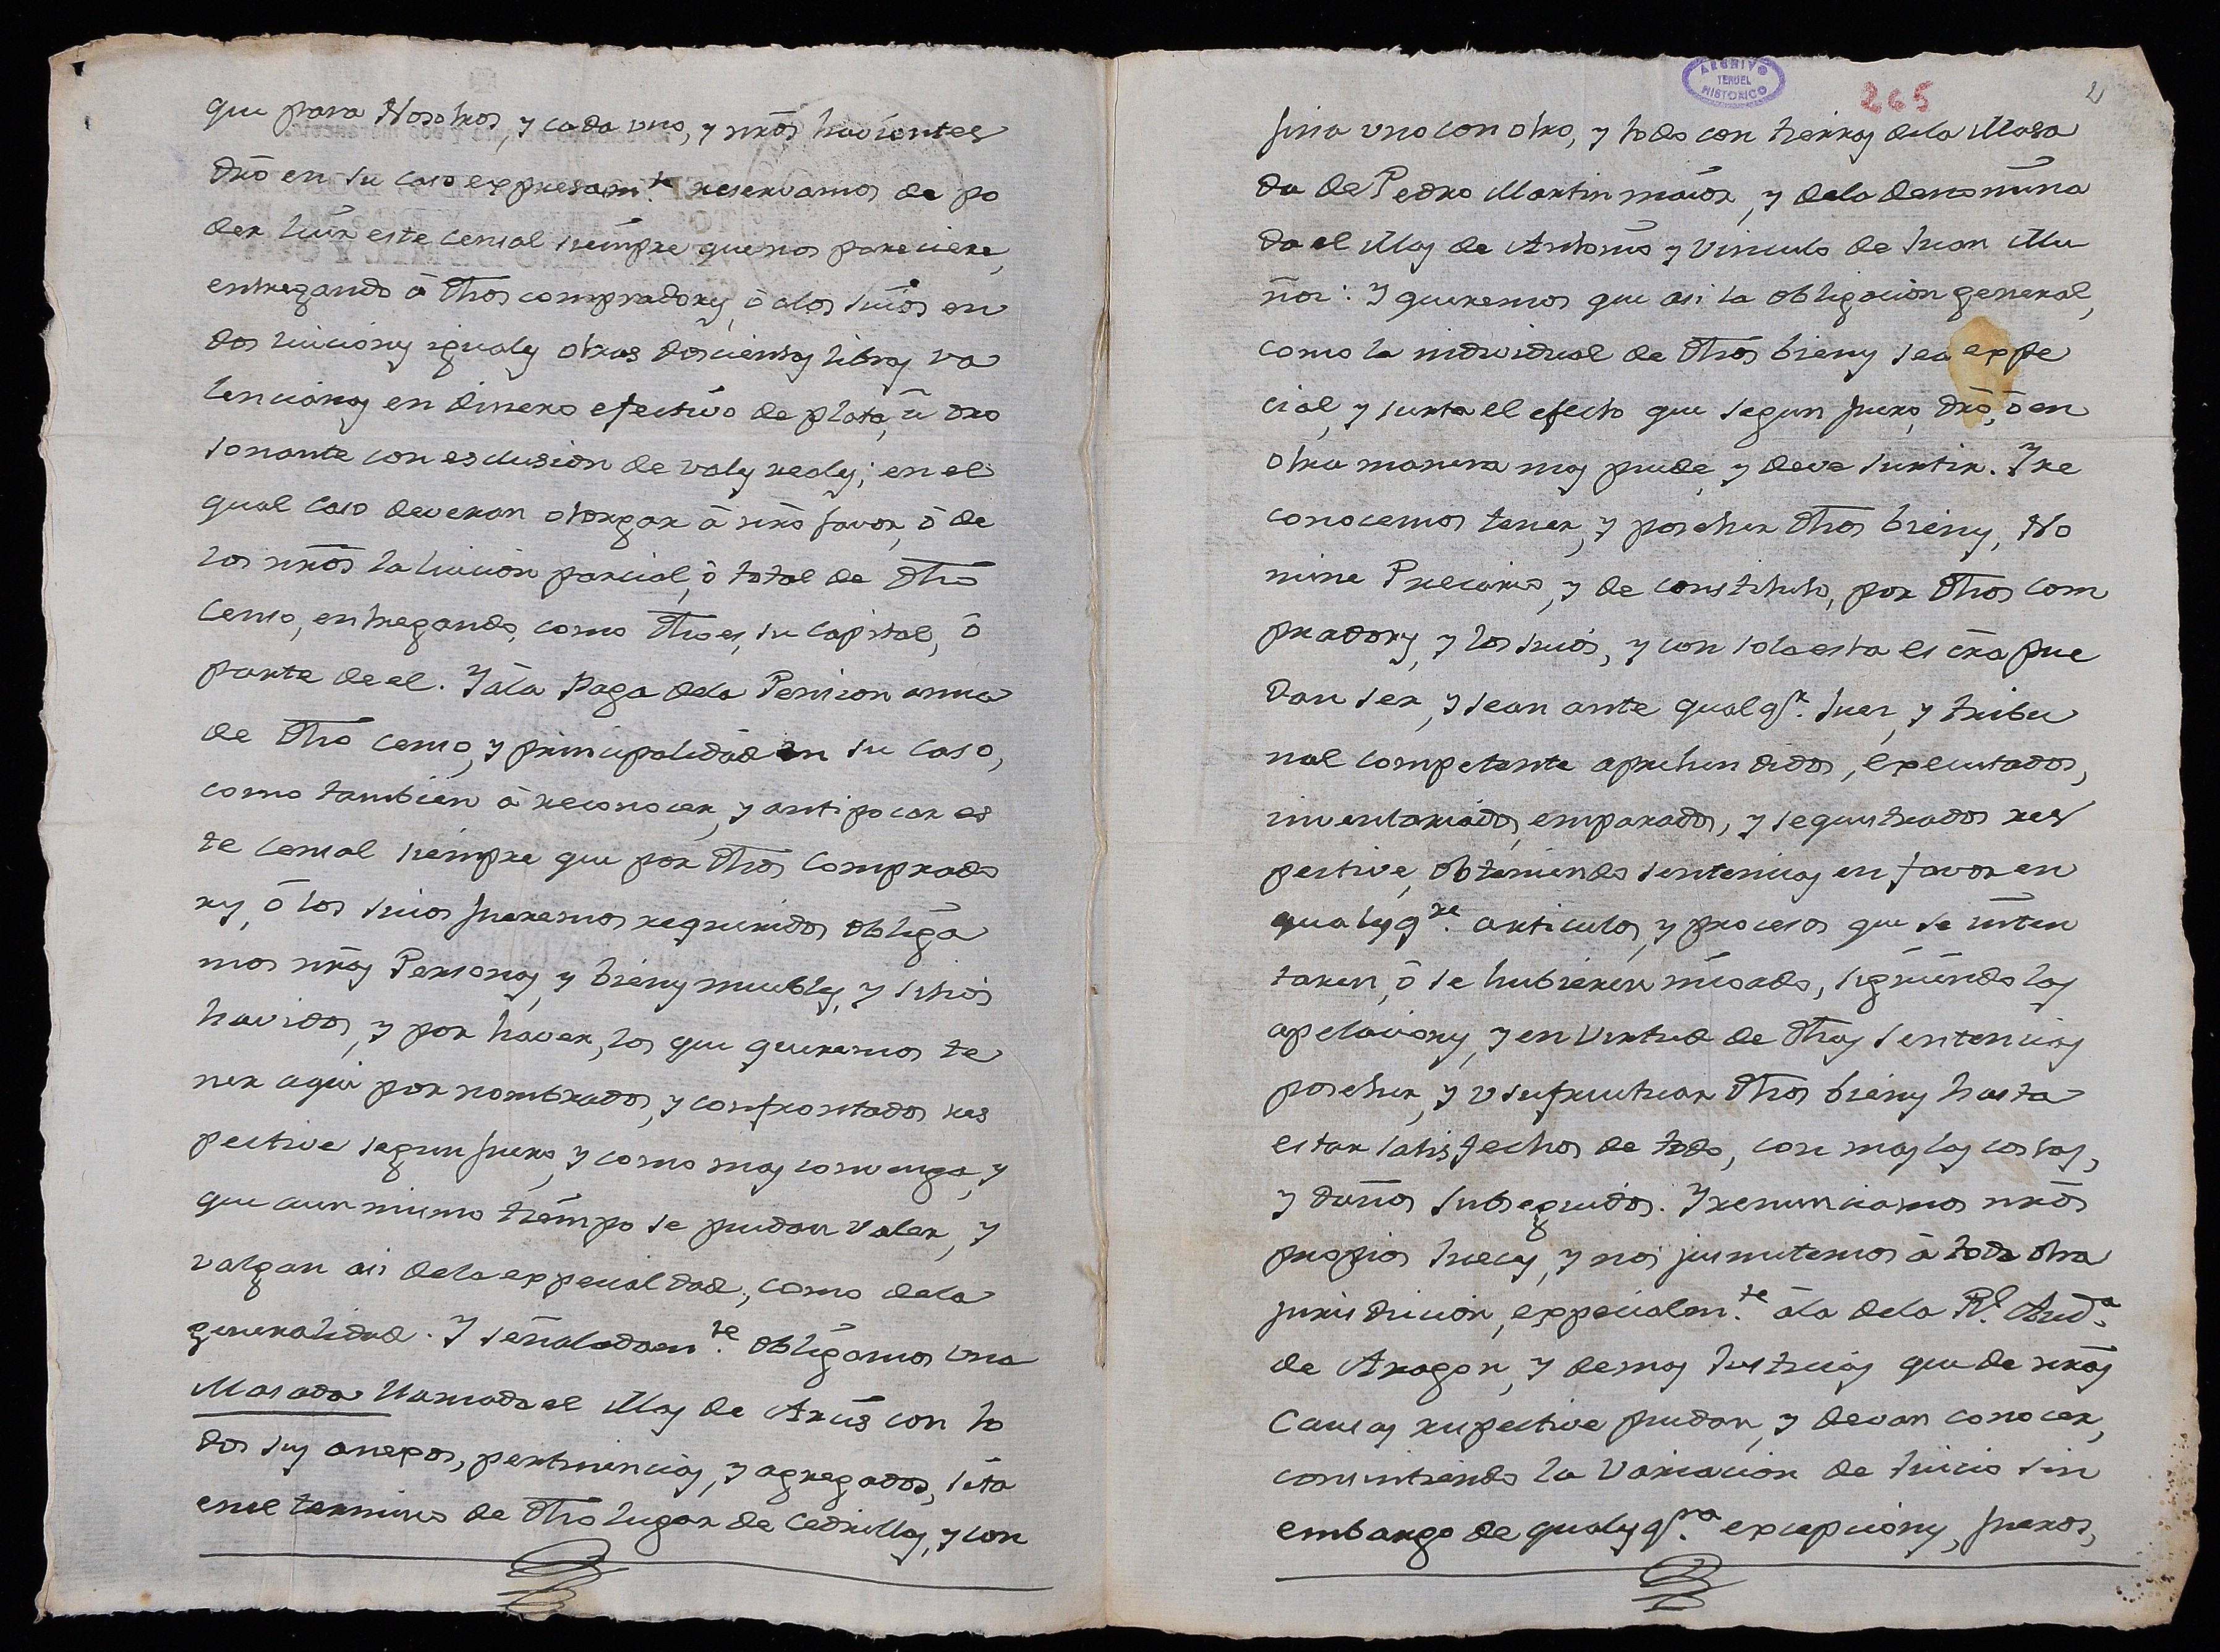 que para Nosotros, y cada uno, y nrōs havientes
drō en su caso expresam.te reservamos de po
der luir este censal siempre que nos pareciere,
entregando á dhos compradores, ó alos suios en
dos luiciones iguales otras doscientas libras va
lencianas en dinero efectivo de plata, ú oro
sonante con esclusion de vales reales; en el
qual caso deveran otorgar á nrō favor, ó de
los nrōs la luicion parcial, ó total de dho
censo, entregando, como dho es, su capital, ó
parte de el. Y ála Paga dela Pension annua
de dho censo, y principalidad en su caso,
como tambien á reconocer, y antipocar es
te censal siempre que por dhos comprado
res, ó los suios fueremos requiridos obliga
mos nrās Personas, y bienes muebles, y sitios
havidos, y por haver, los que queremos te
ner aqui por nombrados, y confrontados res
pective segun fuero, y como mas convenga, y
que aun mismo tiempo se puedan valer, y
valgan asi dela expecialdad, como dela
generalidad. Y señaladam.te obligamos una
Masada llamada el Mas de Arcis con to
dos sus anexos, pertinencias, y agregados, sita
en el termino de dho Lugar de Cedrillas, y con
ARCHIVO
TERUEL
HISTORICO
265
2
fina uno con otro, y todo con tierras dela Masa
da de Pedro Martin maior, y dela denomina
da el Mas de Antonio y Vinculo de Juan Mu
ñoz: Y queremos que asi la obligacion general,
como la individual de dhos bienes sea expe
cial, y surta el efecto que segun fuero, drō, ó en
otra manera mas puede, y deve surtir. Y re
conocemos tener, y poseher dhos bienes, No
mine Precario, y de constituto, por dhos com
pradores, y los suios, y con sola esta escrā pue
dan ser, y sean ante qualq.r Juez, y tribu
nal competente aprehendidos, executados,
inventariados, emparados, y sequestrados res
pective, obteniendo sentencias en favor en
qualesq.re articulos, y procesos que se inten
taren, ó se hubieren inisado, siguiendo las
apelaciones, y en virtud de dhas sentencias
poseher, y usufructuar dhos bienes hasta
estar satisfechos de todo, con mas las costas,
y daños subseguidos. Y renunciamos nrōs
propios Jueces, y nos jusmetemos á toda otra
jurisdicion, expecialm.te ála dela R.l Aud.a
de Aragon, y demas Justicias que de nrās
Causas respective puedan, y devan conocer,
consintiendo la Variacion de Juicio sin
embargo de qualesq.ra excepciones, fueros,